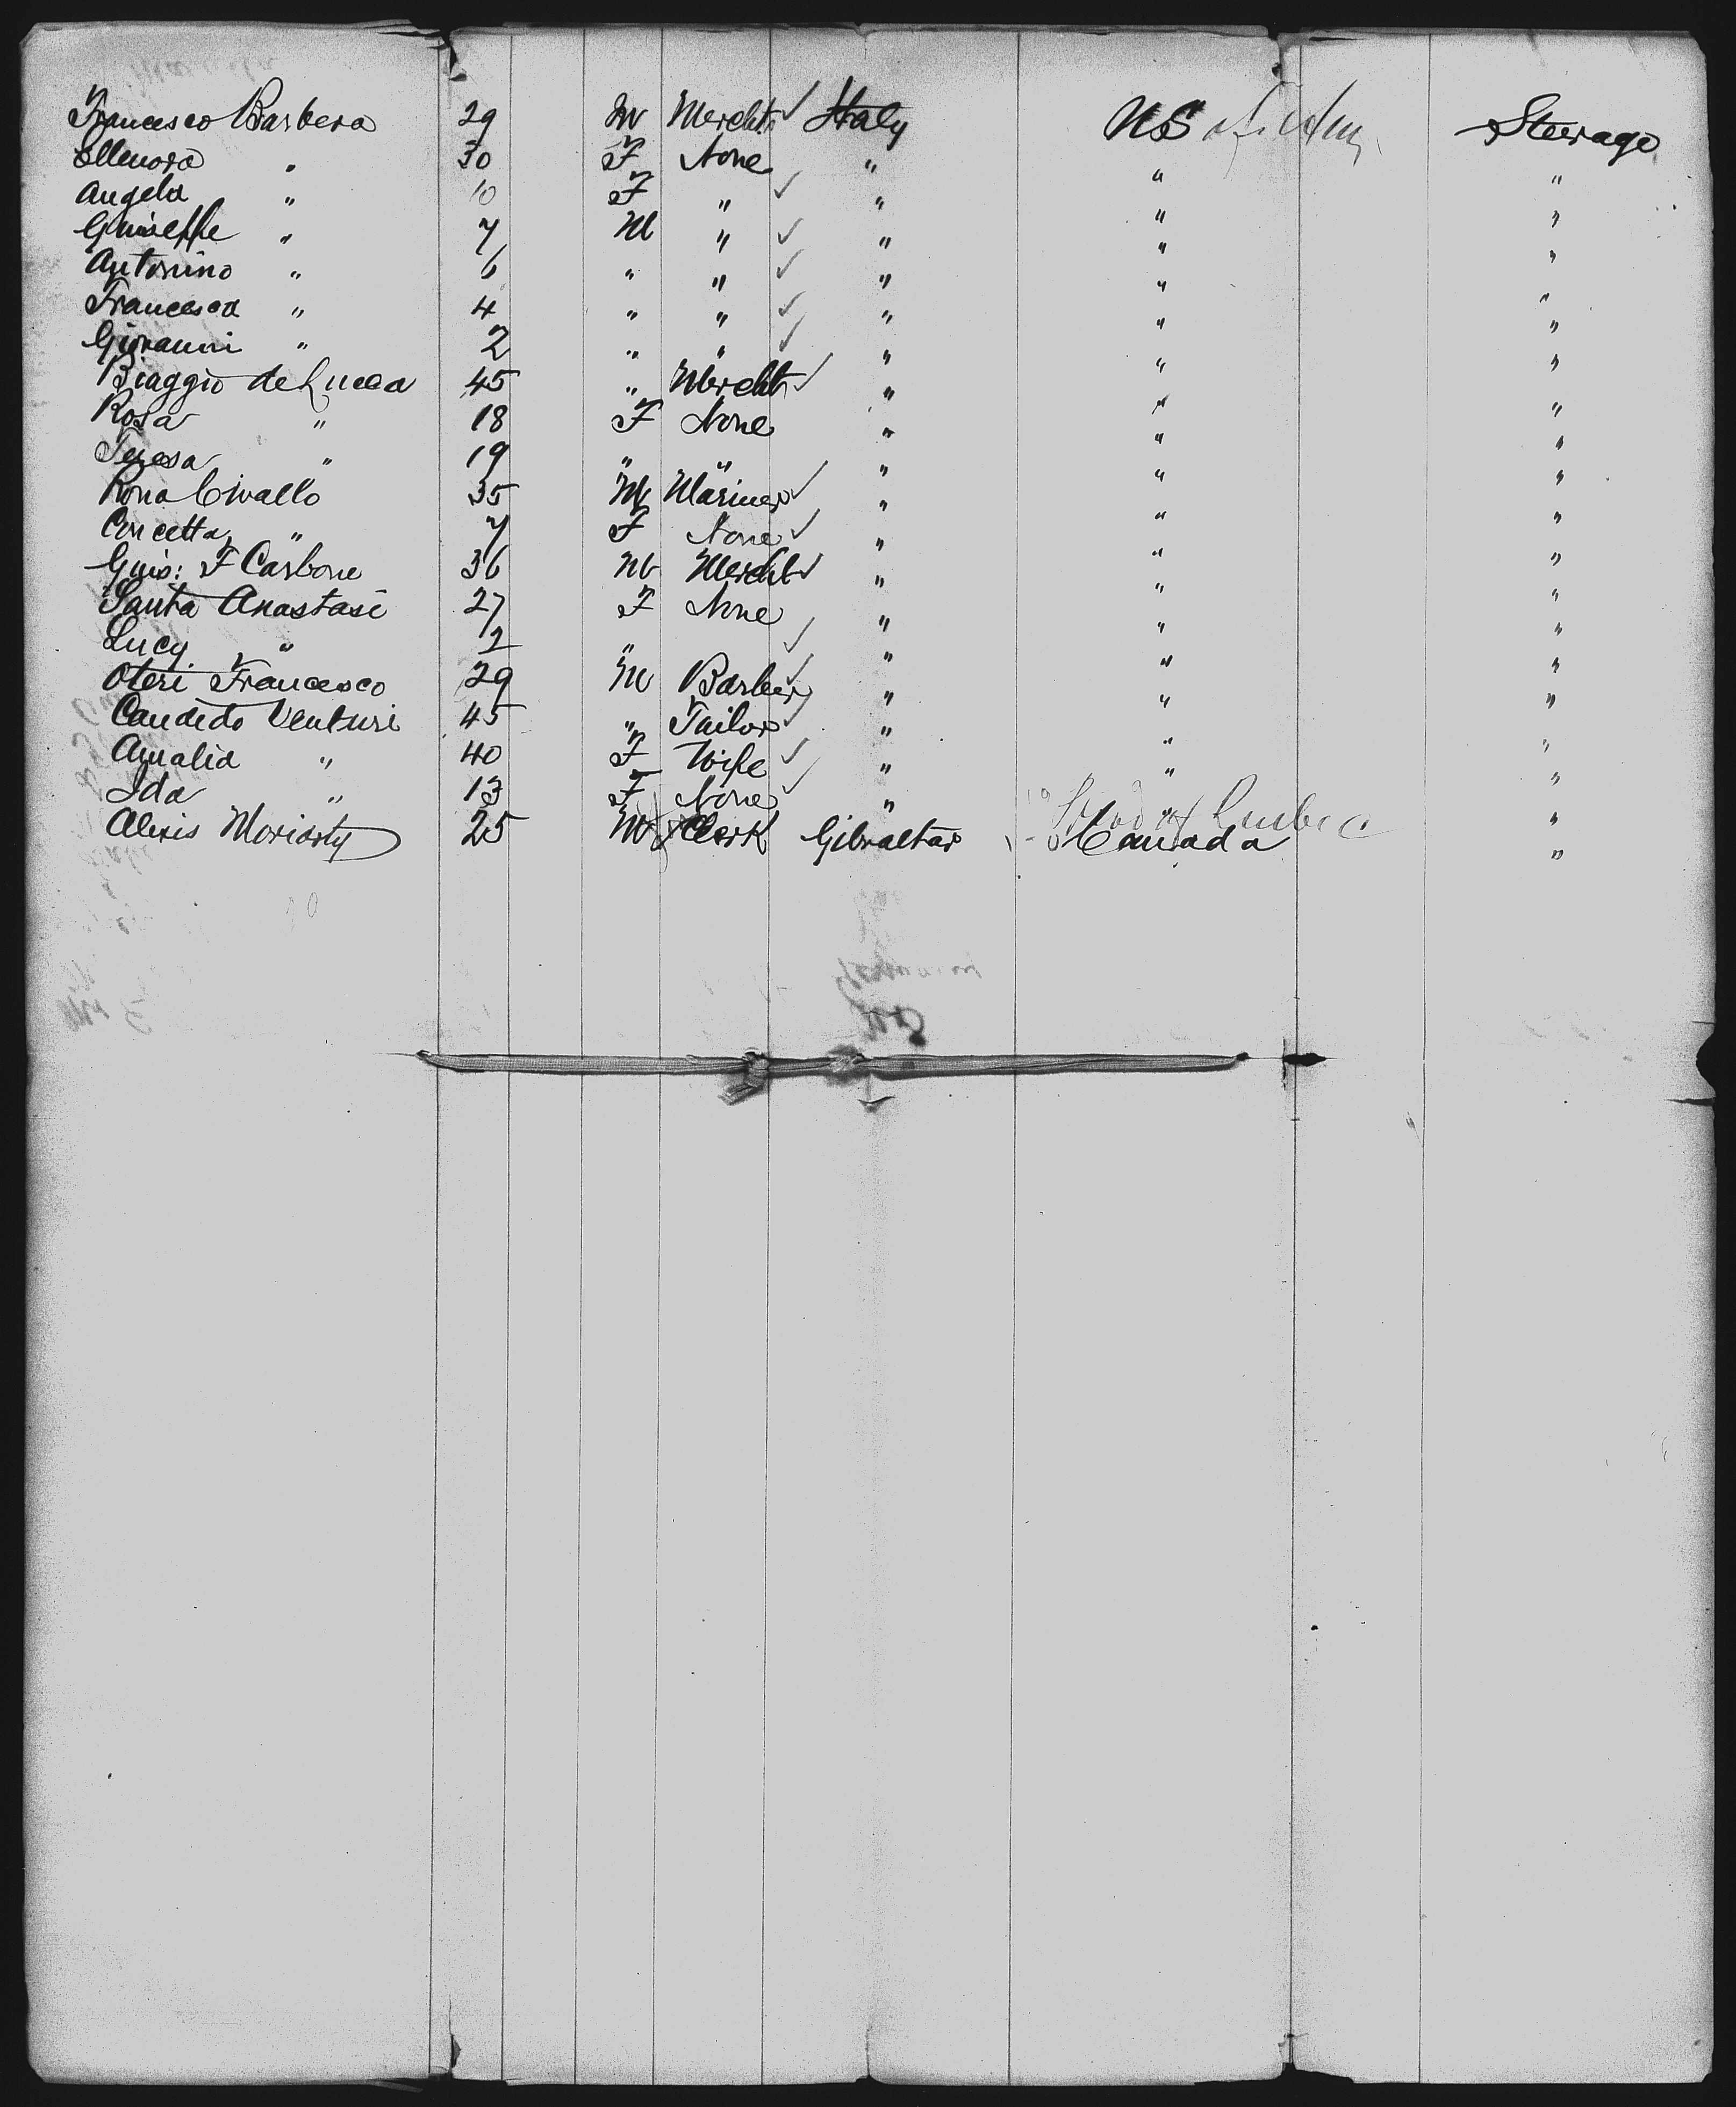 Francesco Barbera 29 M Mercht ✓ Italy US of Am Steerage
Ellenora " 30 F None " " "
Angela " 10 F " ✓ " " "
Guiseppe " 7 M " ✓ " " "
Antonino " 6 " " ✓ " " "
Francesca " 4 " " ✓ " " "
Giovanni " 2 " " ✓ " " "
Biaggio de Lucca 45 " Mercht ✓ " " "
Rosa " 18 F None " " "
Teresa " 19 " " " " "
Rona Civallo 35 M Mariner ✓ " " "
Concetta " 7 F None ✓ " " "
Guis: F Carbone 36 M Mercht ✓ " " "
Santa Anastasi 27 F None " " "
Lucy " 2 " ✓ " " "
Oteri Francesco 29 M Barber ✓ " " "
Candido Venturi 45 " Tailor ✓ " " "
Amalia " 40 F Wife ✓ " " "
Ida " 13 F None ✓ " " "
Alexis Moriarty 25 M Clerk Gibraltar Canada "